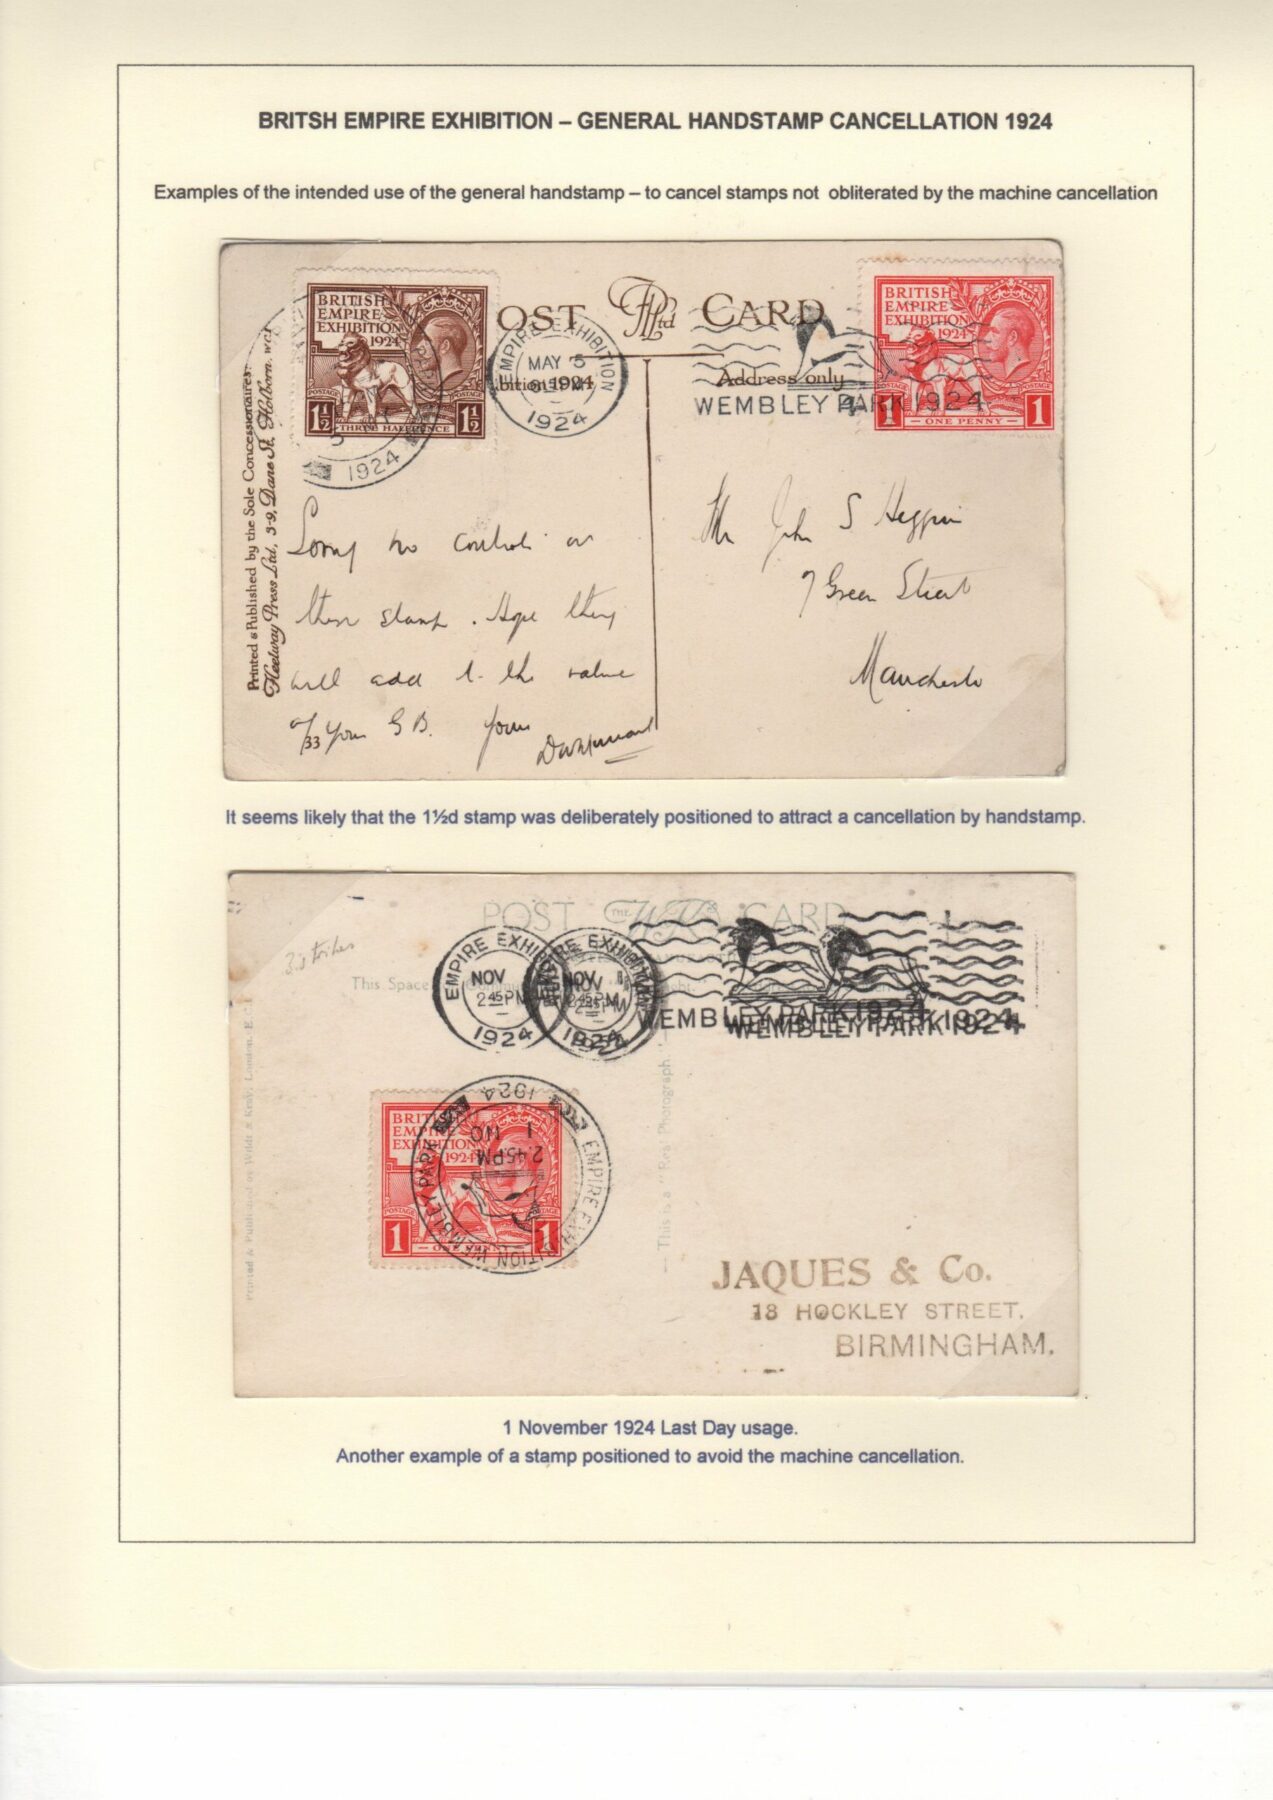 BRITSH EMPIRE EXHIBITION – GENERAL HANDSTAMP CANCELLATION 1924
Examples of the intended use of the general handstamp – to cancel stamps not obliterated by the machine cancellation
POST CARD
BRITISH
EMPIRE
EXHIBITION
1924
POSTAGE POSTAGE
1½ 1½
THREE HALFPENCE
1924
EMPIRE EXHIBITION
MAY 5
1924
Address only
WEMBLEY PARK 1924
BRITISH
EMPIRE
EXHIBITION
1924
POSTAGE POSTAGE
1 1
ONE PENNY
Printed & Published by the Sole Concessionaires:
Fleetway Press Ltd., 3-9, Dane St. Holborn. W.C.1
Sorry no controls on
these stamps. Hope they
will add to the value
of your G B. Yours
33
Mr John S
7 Green Street
Manchester
It seems likely that the 1½d stamp was deliberately positioned to attract a cancellation by handstamp.
POST CARD
3 strikes
This Space
EMPIRE EXHIBITION
NOV 1
2 45 PM
1924
WEMBLEY PARK 1924
WEMBLEY PARK 1924
Printed & Published by Wildt & Kray, London, E.C.1
— This is a "Real Photograph" —
BRITISH
EMPIRE
EXHIBITION
1924
POSTAGE POSTAGE
1 1
EMPIRE EXHIBITION WEMBLEY PARK
1924
1 NO
2.45PM
JAQUES & Co.
18 HOCKLEY STREET,
BIRMINGHAM.
1 November 1924 Last Day usage.
Another example of a stamp positioned to avoid the machine cancellation.